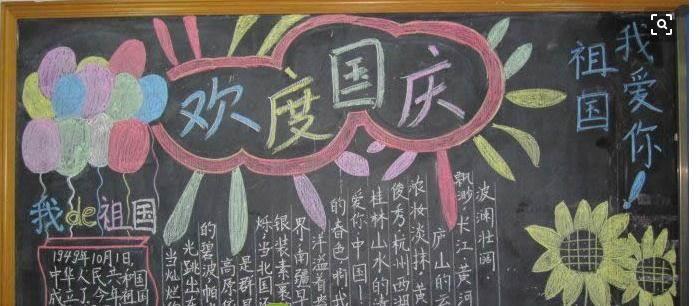 欢度国庆
我爱你!
祖国
我de祖国
1949年10月1日,
中华人民共和国
成立了,今年祖国
波澜壮阔
飘渺·长江·黄河
庐山的云
浓妆淡抹·黄
俊秀·杭州西湖
桂林山水的清
爱你·中国!
的春色·啊·我
洋溢着
界·南疆早
银装素裹
烁当北国还
是群星
高原
的碧波帕
光跳出东
当灿烂